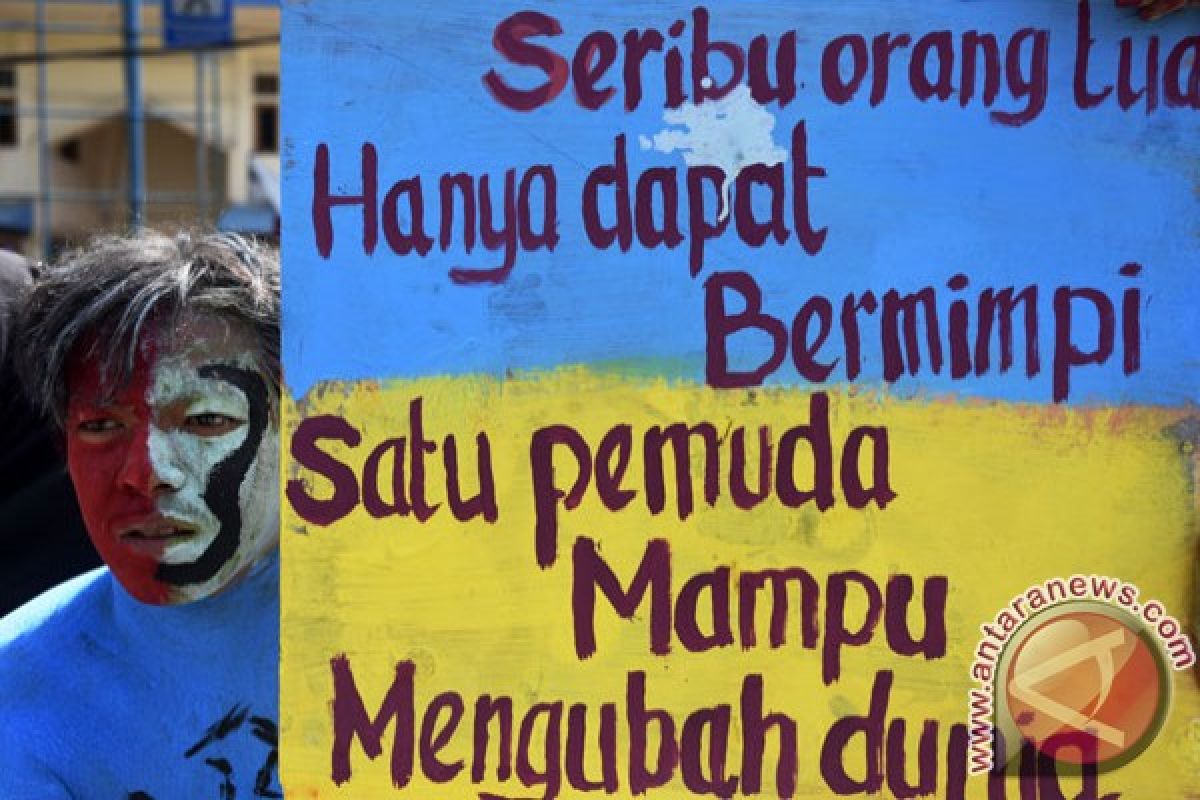 Seribu orang tua
Hanya dapat
Bermimpi
Satu pemuda
Mampu
Mengubah dunia
www.antaranews.com